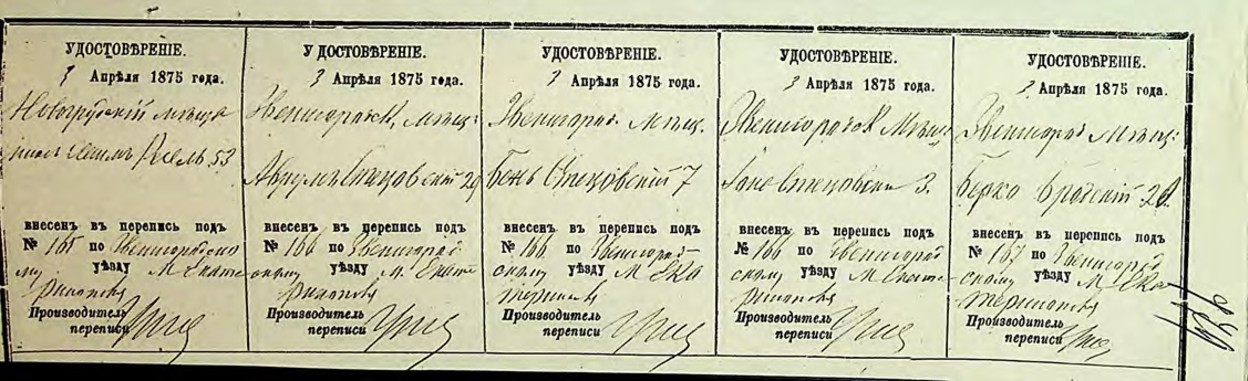 УДОСТОВѢРЕНІЕ.
3 Апрѣля 1875 года.
мѣща
53
внесенъ въ перепись подъ
№ 165 по Звенигородско
му уѣзду М Екате
ринополь
Производитель
переписи
УДОСТОВѢРЕНІЕ.
3 Апрѣля 1875 года.
Звенигородск. мѣщ:
Аврумъ Стецовскій 29
внесенъ въ перепись подъ
№ 166 по Звенигород
скому уѣзду М. Екате
ринополь
Производитель
переписи
УДОСТОВѢРЕНІЕ.
3 Апрѣля 1875 года.
Звенигород. мѣщ.
Бень Стецовскій 7
внесенъ въ перепись подъ
№ 166 по Звенигород
скому уѣзду М Ека
Производитель
переписи
УДОСТОВѢРЕНІЕ.
3 Апрѣля 1875 года.
Звенигородск мѣщ
Стецовскій 3.
внесенъ въ перепись подъ
№ 166 по Звенигород
скому уѣзду М Екате
ринополь
Производитель
переписи
УДОСТОВѢРЕНІЕ.
3 Апрѣля 1875 года.
Звенигород мѣщ:
Берко Бродскій
внесенъ въ перепись подъ
№ 167 по Звенигород
скому уѣзду М Ека
теринополь
Производитель
переписи